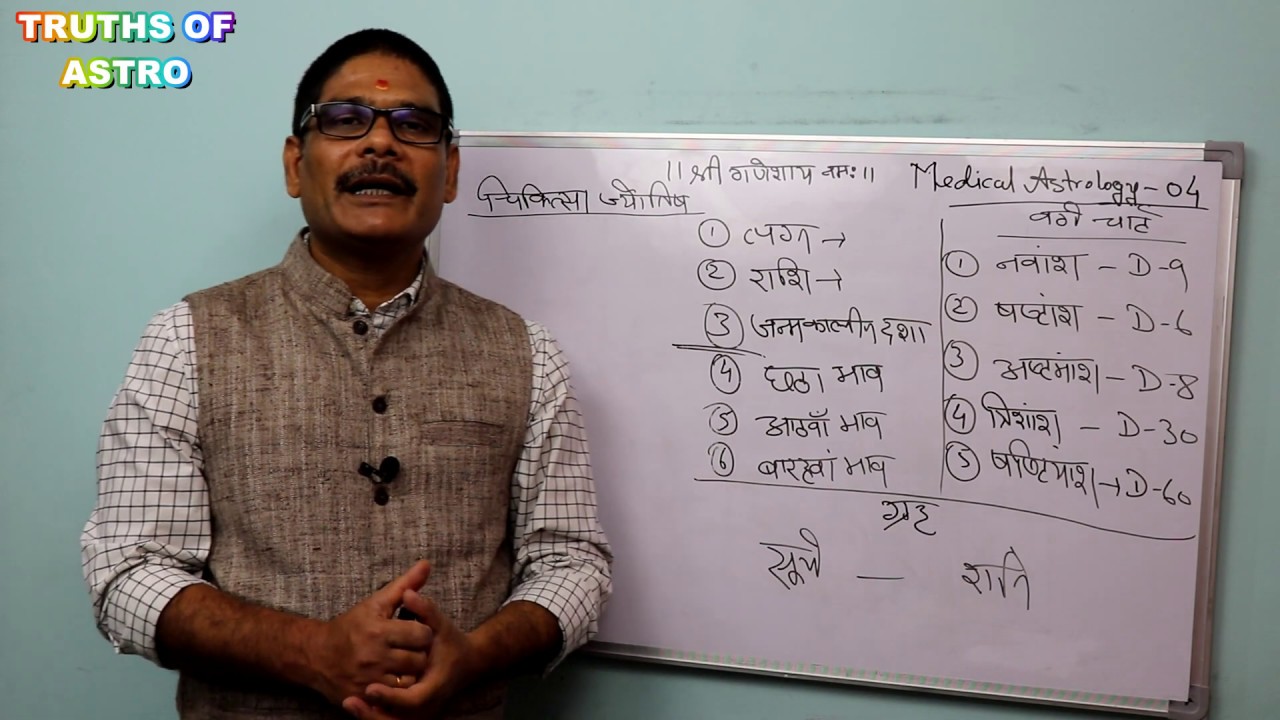 TRUTHS OF
ASTRO
॥ श्री गणेशाय नमः ॥
Medical Astrology - 04
चिकित्सा ज्योतिष
① लग्न →
② राशि →
③ जन्मकालीन दशा
④ छठा भाव
⑤ आठवाँ भाव
⑥ बारहवां भाव
वर्ग चार्ट
① नवांश - D-9
② षष्टांश - D-6
③ अष्टमांश - D-8
④ त्रिशांश - D-30
⑤ षष्टिमांश → D-60
ग्रह
सूर्य — शनि